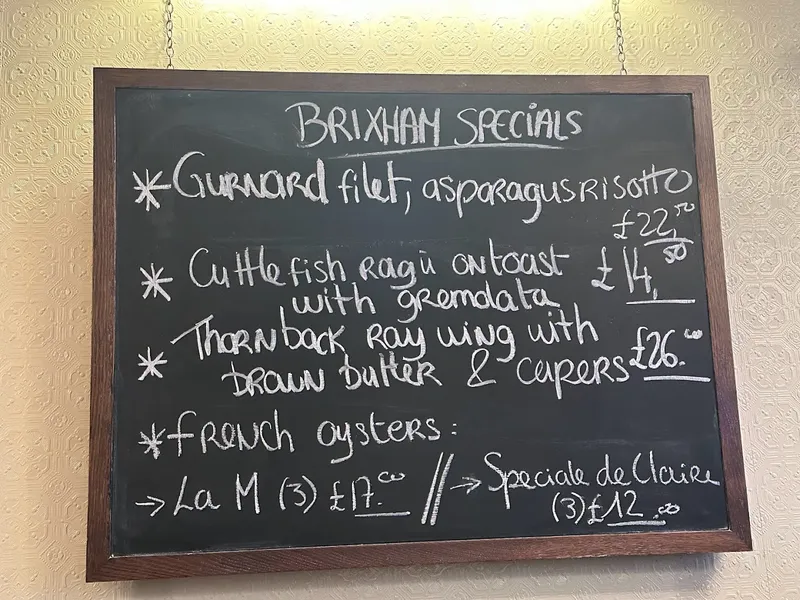 BRIXHAM SPECIALS
* Gurnard filet, asparagus risotto
£22,50
* Cuttlefish ragù on toast £14,50
with gremolata
* Thornback ray wing with
brown butter & capers £26.00
* French oysters:
→ La M (3) £17.00 // → Speciale de Claire
(3) £12.00